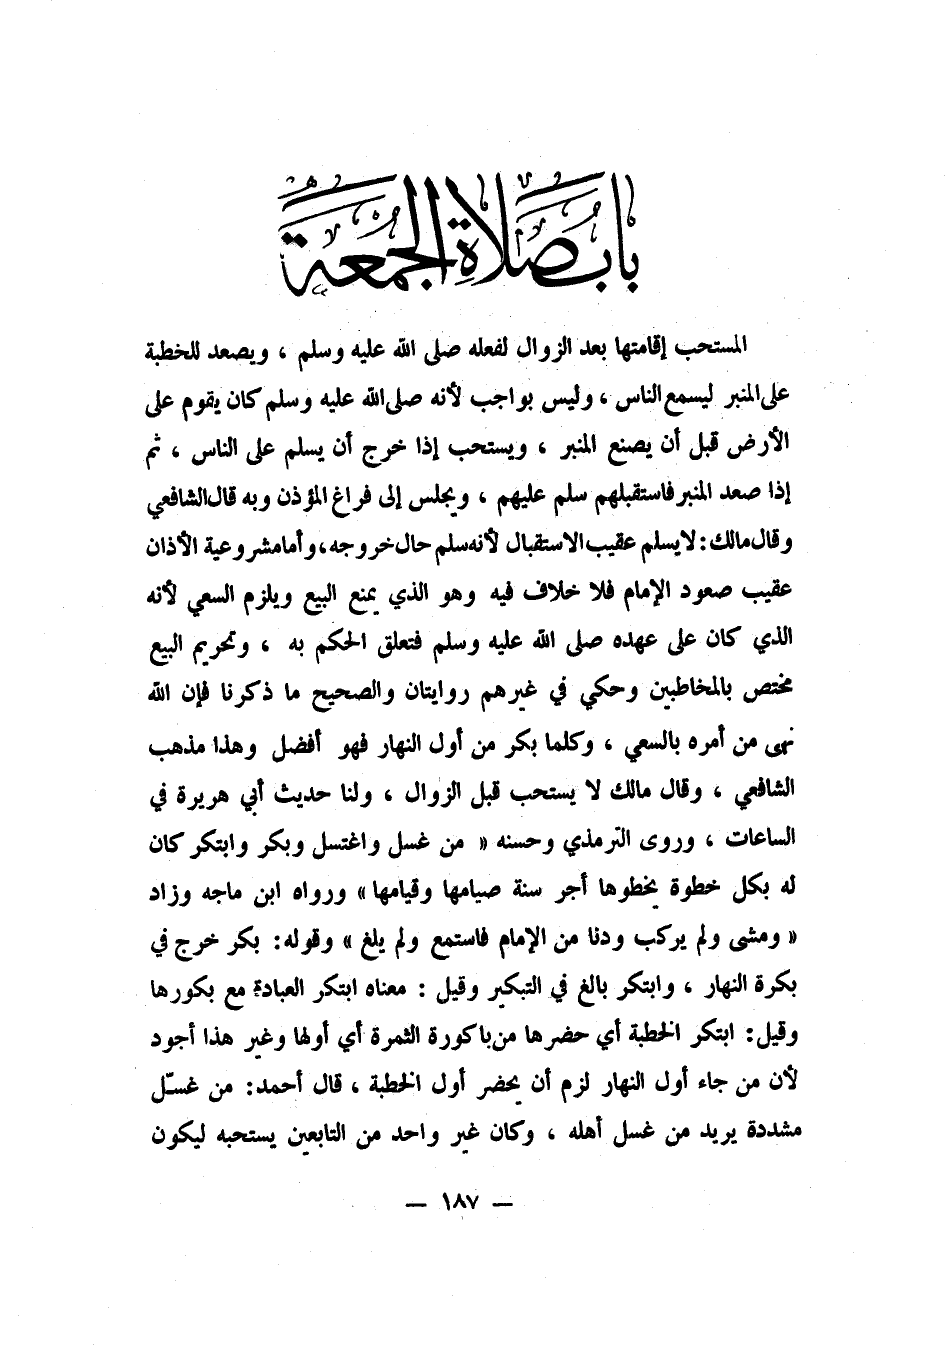 باب صلاة الجمعة
المستحب إقامتها بعد الزوال لفعله صلى الله عليه وسلم ، ويصعد للخطبة
على المنبر ليسمع الناس ، وليس بواجب لأنه صلى الله عليه وسلم كان يقوم على
الأرض قبل أن يصنع المنبر ، ويستحب إذا خرج أن يسلم على الناس ، ثم
إذا صعد المنبر فاستقبلهم سلم عليهم ، ويجلس إلى فراغ المؤذن وبه قال الشافعي
وقال مالك : لا يسلم عقيب الاستقبال لأنه سلم حال خروجه ، وأما مشروعية الأذان
عقيب صعود الإمام فلا خلاف فيه وهو الذي يمنع البيع ويلزم السعي لأنه
الذي كان على عهده صلى الله عليه وسلم فتعلق الحكم به ، وتحريم البيع
مختص بالمخاطبين وحكي في غيرهم روايتان والصحيح ما ذكرنا فإن الله
نهى من أمره بالسعي ، وكلما بكر من أول النهار فهو أفضل وهذا مذهب
الشافعي ، وقال مالك لا يستحب قبل الزوال ، ولنا حديث أبي هريرة في
الساعات ، وروى الترمذي وحسنه « من غسل واغتسل وبكر وابتكر كان
له بكل خطوة يخطوها أجر سنة صيامها وقيامها » ورواه ابن ماجه وزاد
« ومشى ولم يركب ودنا من الإمام فاستمع ولم يلغ » وقوله : بكر خرج في
بكرة النهار ، وابتكر بالغ في التبكير وقيل : معناه ابتكر العبادة مع بكورها
وقيل : ابتكر الخطبة أي حضرها من باكورة الثمرة أي أولها وغير هذا أجود
لأن من جاء أول النهار لزم أن يحضر أول الخطبة ، قال أحمد : من غسّل
مشددة يريد من غسل أهله ، وكان غير واحد من التابعين يستحبه ليكون
— ١٨٧ —